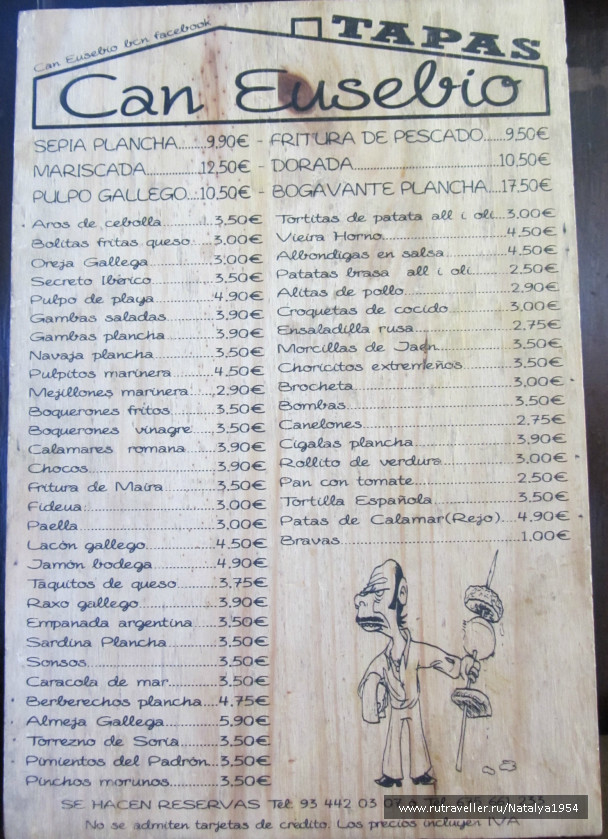 Can Eusebio bcn facebook
TAPAS
Can Eusebio
SEPIA PLANCHA.......9,90€ - FRITURA DE PESCADO....9,50€
MARISCADA..............12,50€ - DORADA..........................10,50€
PULPO GALLEGO...10,50€ - BOGAVANTE PLANCHA...17,50€
Aros de cebolla............3,50€
Bolitas fritas queso.....3,00€
Oreja Gallega..............3,00€
Secreto Ibérico............3,50€
Pulpo de playa............4,90€
Gambas saladas..........3,90€
Gambas plancha..........3,90€
Navaja plancha............3,50€
Pulpitos marinera........4,50€
Mejillones marinera.....2,90€
Boquerones fritos........3,50€
Boquerones vinagre....3,50€
Calamares romana......3,90€
Chocos........................3,90€
Fritura de Maira..........3,50€
Fideua.........................3,00€
Paella..........................3,00€
Lacón gallego..............4,50€
Jamón bodega.............4,90€
Taquitos de queso.......3,75€
Raxo gallego...............3,90€
Empanada argentina....3,50€
Sardina Plancha..........3,50€
Sonsos........................3,50€
Caracola de mar..........3,50€
Berberechos plancha...4,75€
Almeja Gallega............5,90€
Torrezno de Soria........3,50€
Pimientos del Padrón...3,50€
Pinchos morunos.........3,50€
Tortitas de patata all i oli...3,00€
Vieira Horno.......................4,50€
Albondigas en salsa............4,50€
Patatas brasa all i oli.........2,50€
Alitas de pollo....................2,90€
Croquetas de cocido...........3,00€
Ensaladilla rusa..................2,75€
Morcillas de Jaen................3,50€
Choricitos extremeños.........3,50€
Brocheta.............................3,00€
Bombas...............................3,50€
Canelones...........................2,75€
Cigalas plancha...................3,90€
Rollito de verdura................3,00€
Pan con tomate...................2,50€
Tortilla Española.................3,50€
Patas de Calamar(Rejo)....4,90€
Bravas................................1,00€
SE HACEN RESERVAS Tel: 93 442 03 07
www.rutraveller.ru/Natalya1954
No se admiten tarjetas de crédito. Los precios incluyen IVA